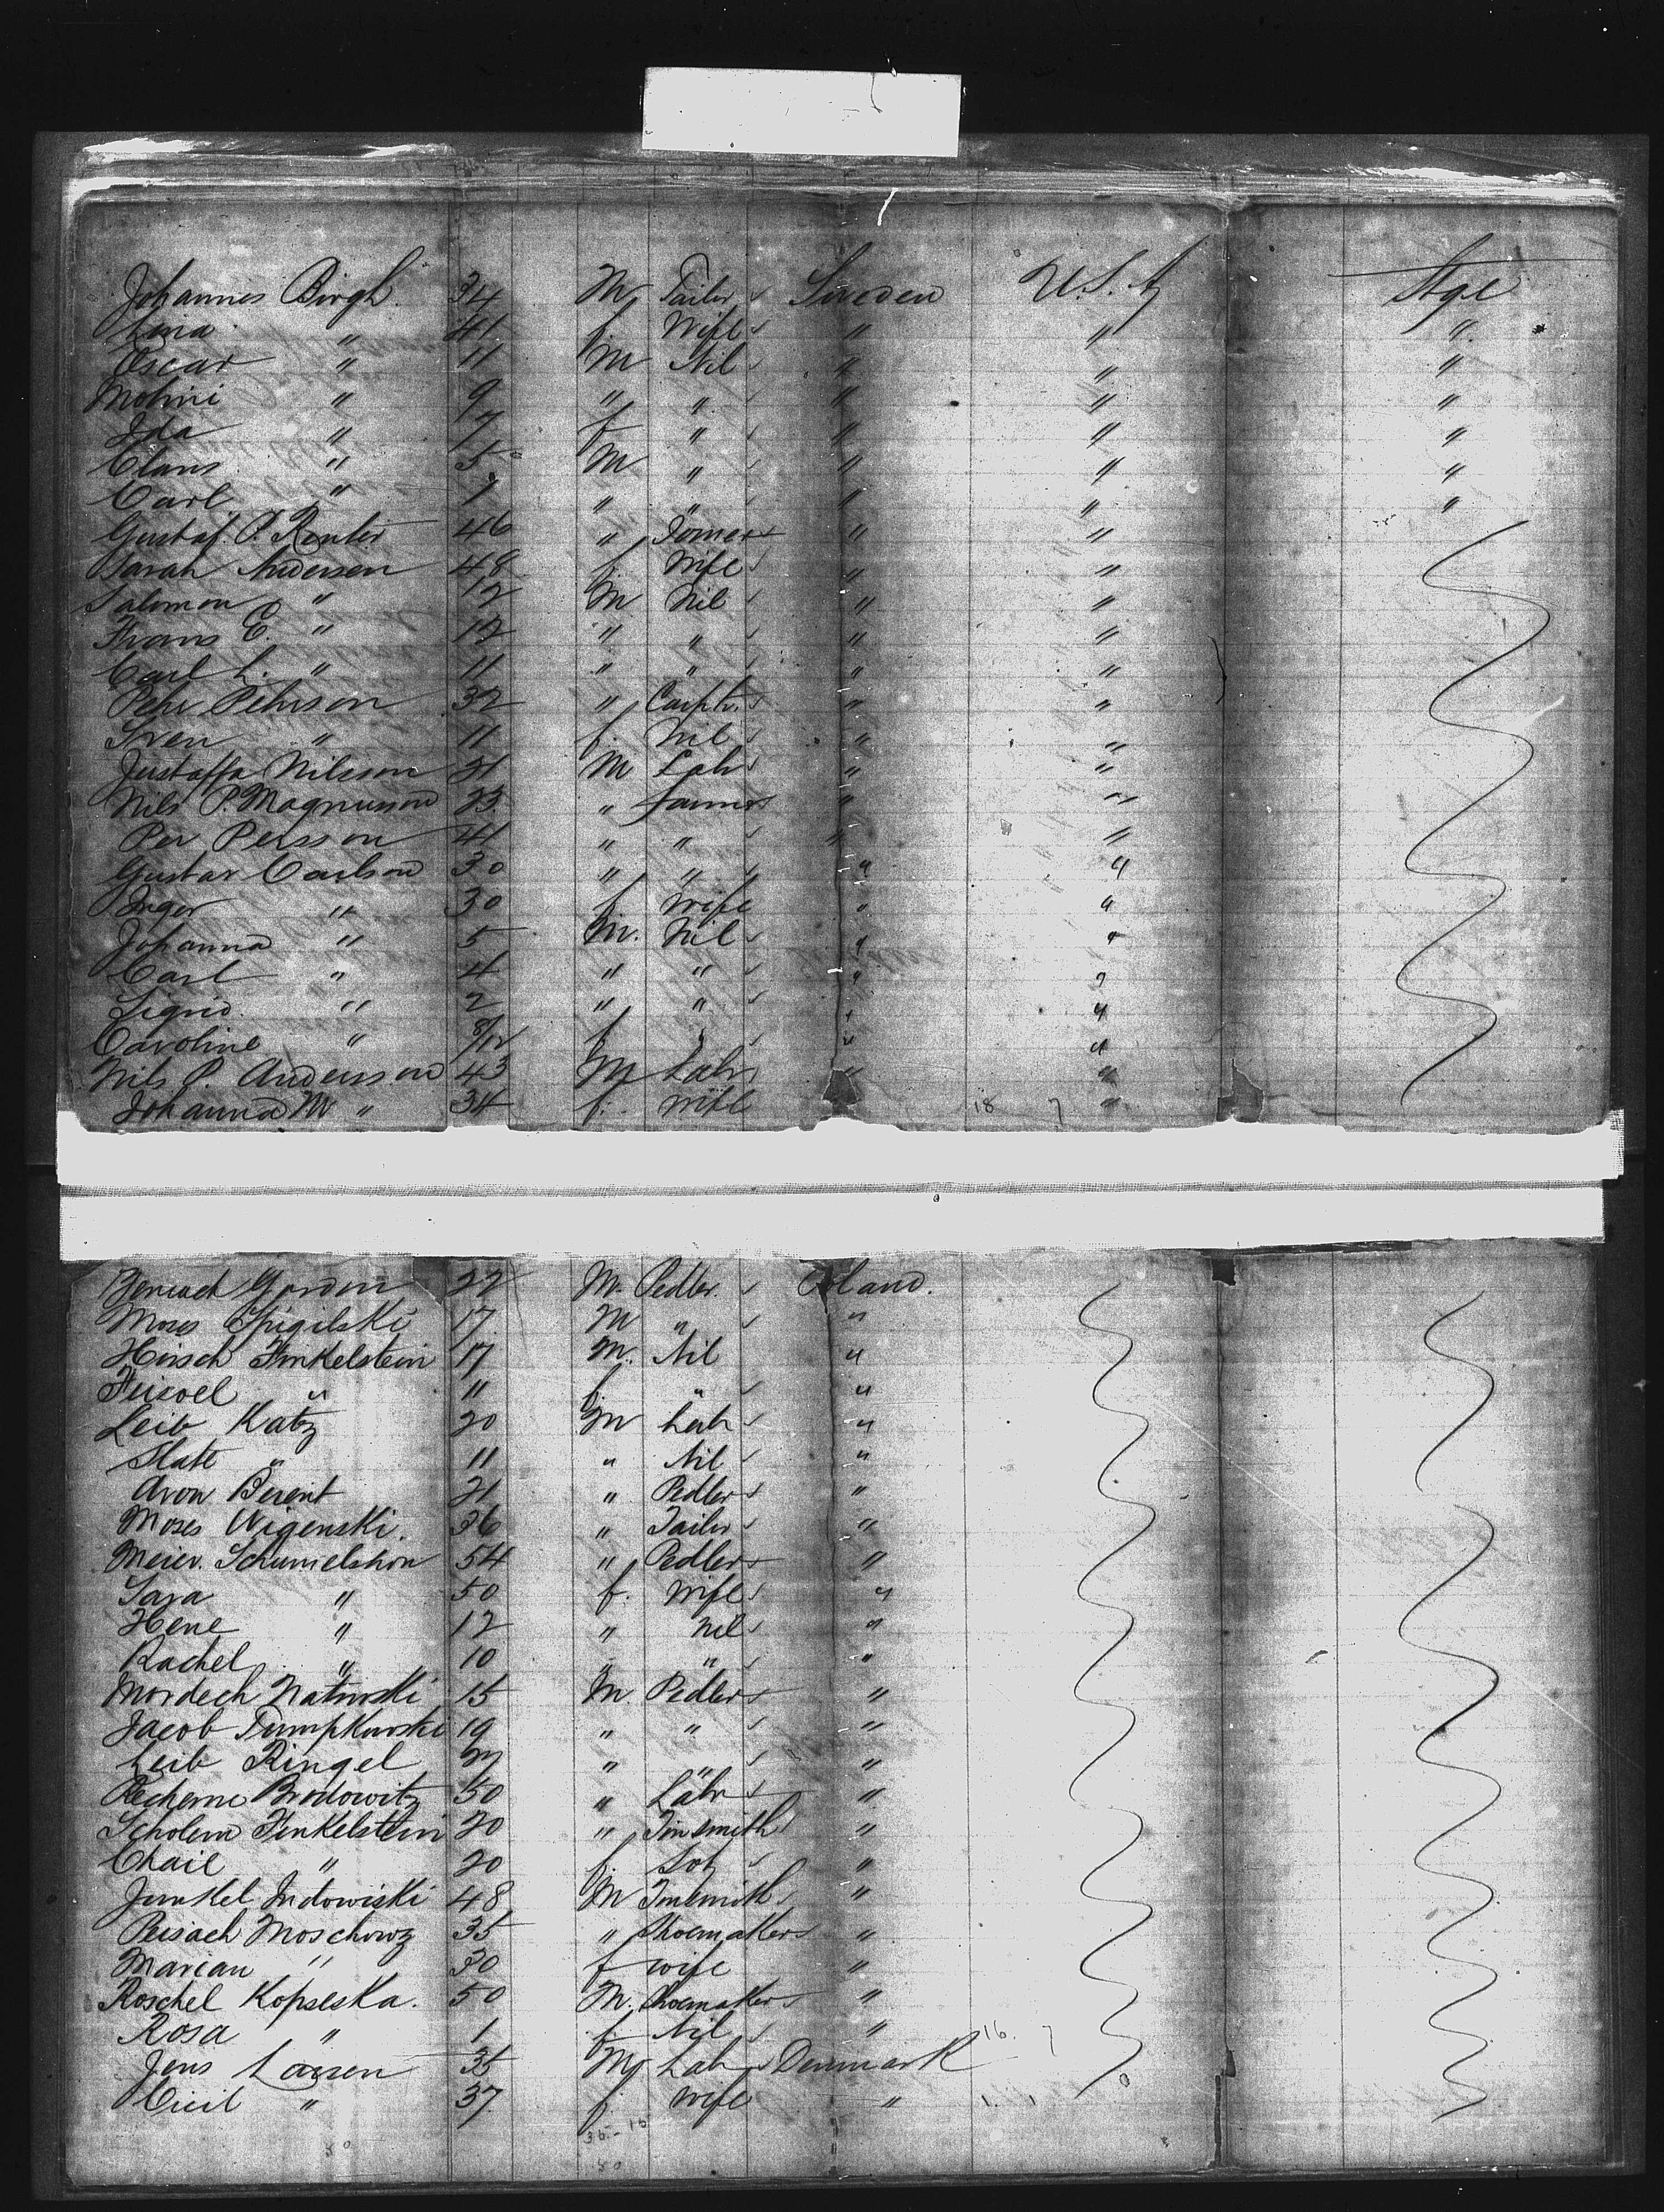 Johannes Birgh 34 M Tailor Sweden U.S.A Stge
Lina " 41 f. Wife " " "
Oscar " 11 M Nil " " "
" 9 " " " " "
Ida " 7 f " " " "
Claus " 5 M " " " "
Carl " " " " " "
Gustaf. P. 46 " " "
Sarah Andersen 48 f. Wife " "
Salomon " 12 M Nil " "
Frans E. " 12 " " " "
Carl L. " 11 " " " "
Pehr Pehrson 32 " Carptr. " "
Sven " 11 f. Nil " "
Justaffa Nilsson 21 M Labr " "
Nils P. Magnusson 23 " Farmer " "
Per Persson 41 " " " "
Gustav Carlson 30 " " " "
Inger " 30 f Wife " "
Johanna " 5 M. Nil " "
Carl " 4 " " " "
Sigrid " 2 " " " "
Caroline " 8/12 f " " "
Nils P. Anderson 43 M Labr " "
Johanna M " 34 f. Wife 18 7 "
Gordon 22 M. Pedler Poland.
Moses Spigilski 17 M " "
Hirsch Finkelstein 17 M. Nil "
" 11 f. " "
Leib Katz 20 M Labr "
Slate " 11 " Nil "
Aron Berent 21 " Pedler "
Moses Wigenski. 36 " Tailor "
Meier. Schumelshon 54 " Pedler "
Sara " 50 f. Wife "
Hene " 12 " Nil "
Rachel " 10 " " "
Mordech 15 M Pedler "
Jacob 19 " " "
Leib Ringel " " "
Brodowitz 50 " Labr "
Scholem Finkelstein 20 " Tinsmith "
" 20 f. "
48 M Tinsmith "
Peisach Moschowz 35 " Shoemaker "
Marian " 30 f wife "
Roschel Kopseska. 50 M. Shoemaker "
Rosa " 1 f. Nil " 16. 7
Jens Larsen 35 M Labr Denmark
" 37 f. wife " 1. 1